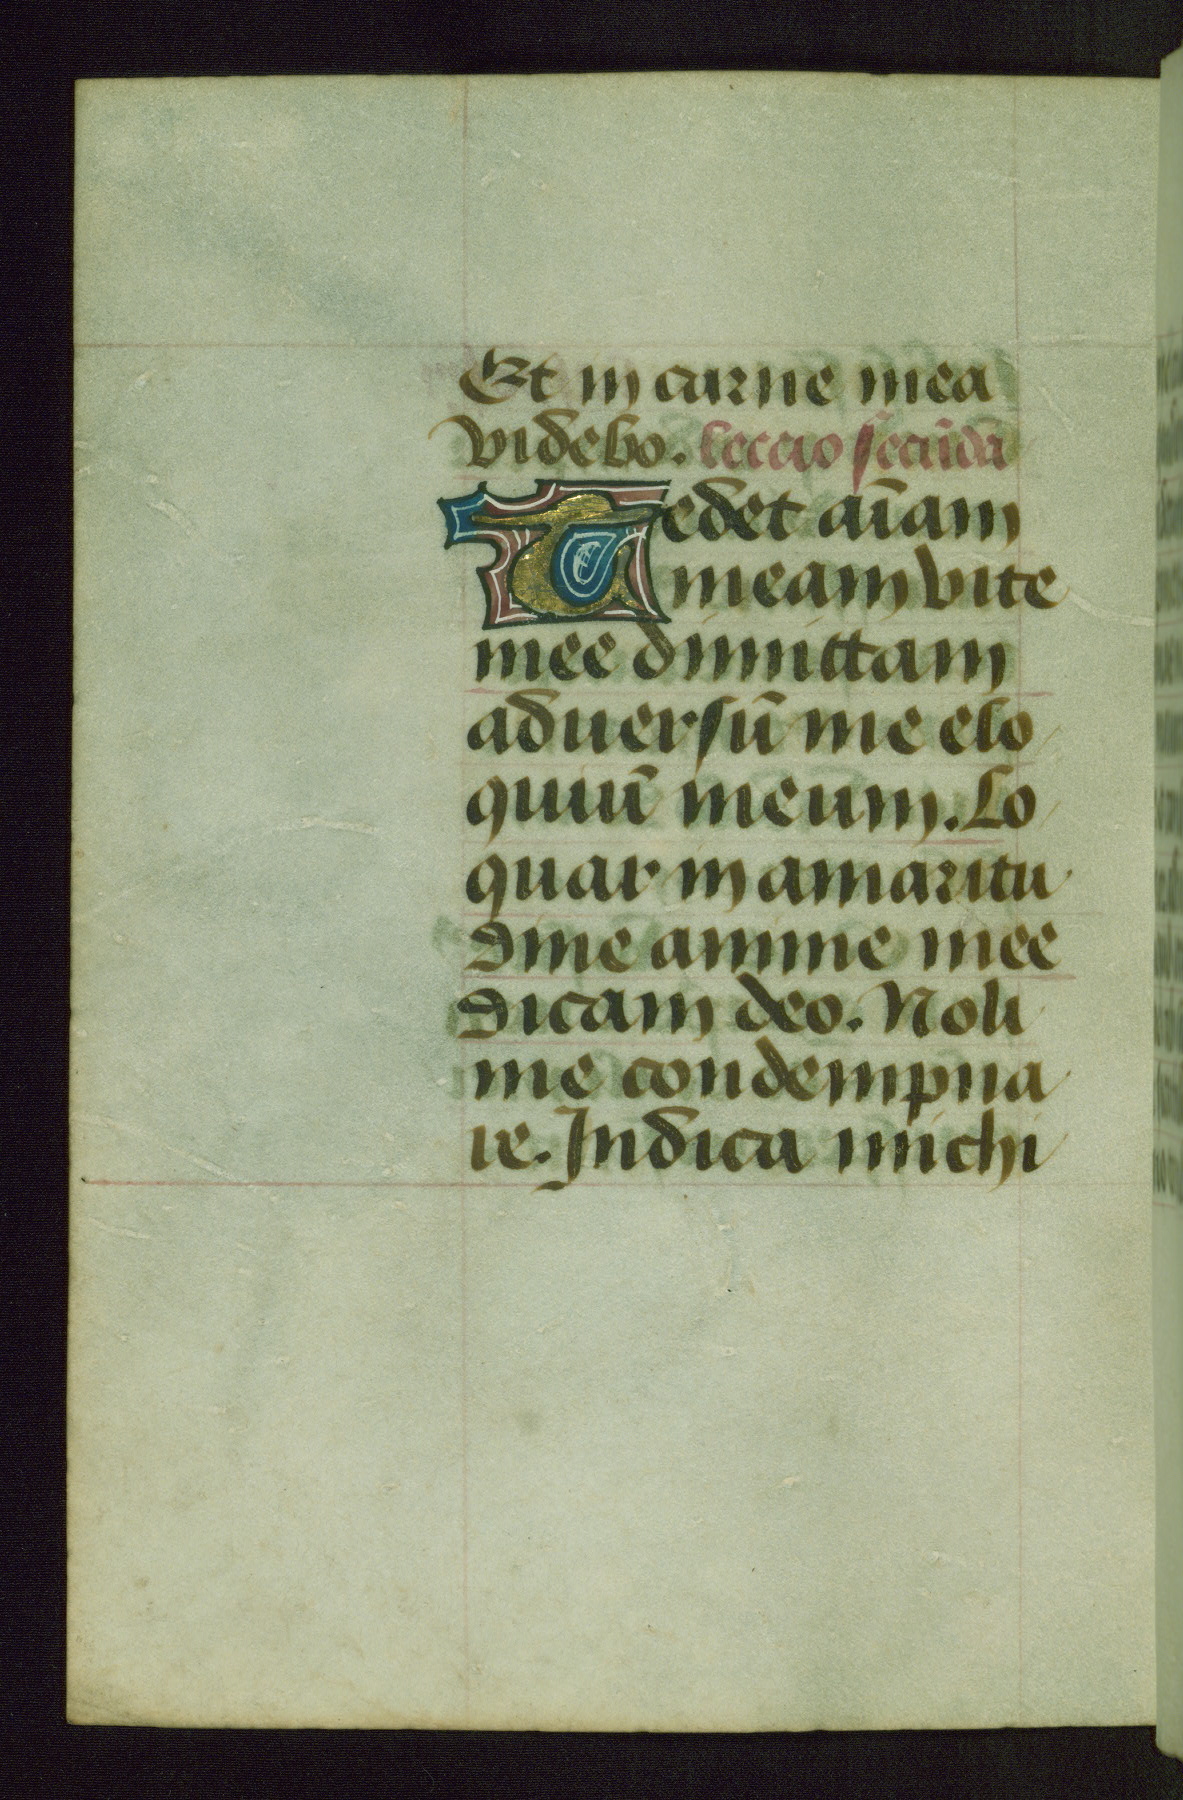 Et in carne mea
videbo. leccio secu̅da
Tedet ai̅am
meam vite
mee dimittam
adversu̅ me elo
quiu̅ meum. Lo
quar in amaritu
dine anime mee
dicam deo. Noli
me condempna
re. Indica michi